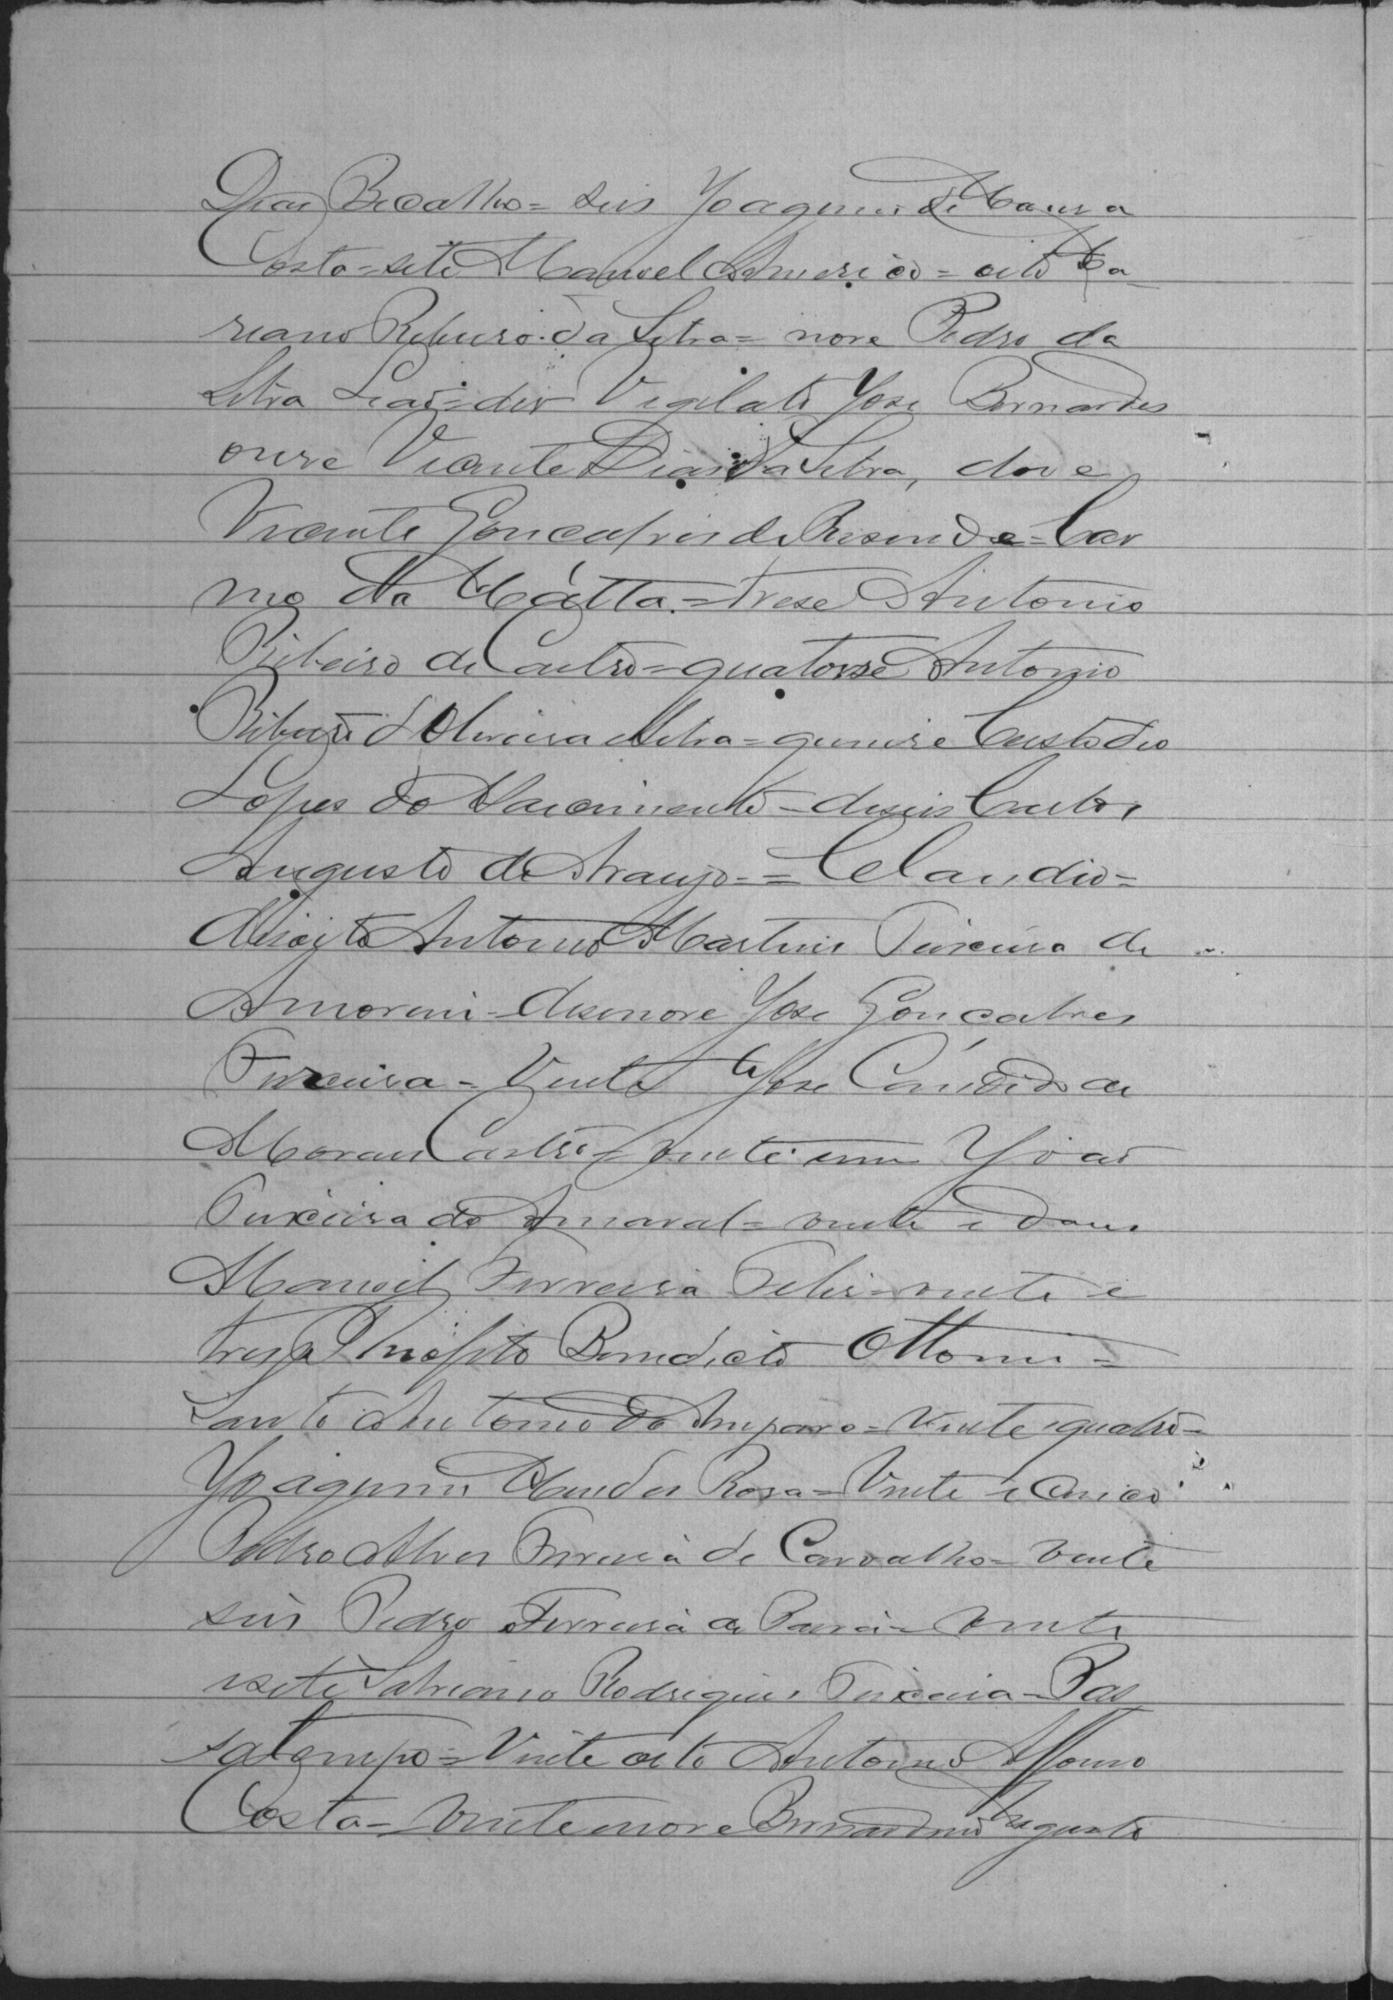 Dias Bicalho = seis Joaquim de Moura
Costa = sete Manoel Americo = oito Ma-
riano Ribeiro da Silva = nove Pedro da
Silva Leão = dez Vigilato José Bernardes
onze Vicente Dias da Silva, doze
Vicente Gonçalves de Resende = Car
mo da Matta. = treze Antonio
Ribeiro de Castro = quatorze Antonio
Ribeiro d'Oliveira Silva = quinze Custodio
Lopes do Nascimento = deseis Carlos
Augusto de Araujo = = Claudio =
desoito Antonio Martins Teixeira de
Amorim = desenove José Gonçalves
Teixeira = Vinte José Candido de
Moraes Castro = vinte um João
Teixeira do Amaral = vinte e dous
Manoel Ferreira Felis = vinte e
tres Benedicto Ottoni =
Santo Antonio do Amparo = Vinte quatro =
Joaquim Mendes Rosa = Vinte e cinco
Pedro Alves Ferreira de Carvalho = vinte
seis Pedro Ferreira de Paiva = vinte
e sete Rodrigues Teixeira = Pas
satempo = Vinte oito Antonio Affonso
Costa = Vinte nove Bernardino Augusto